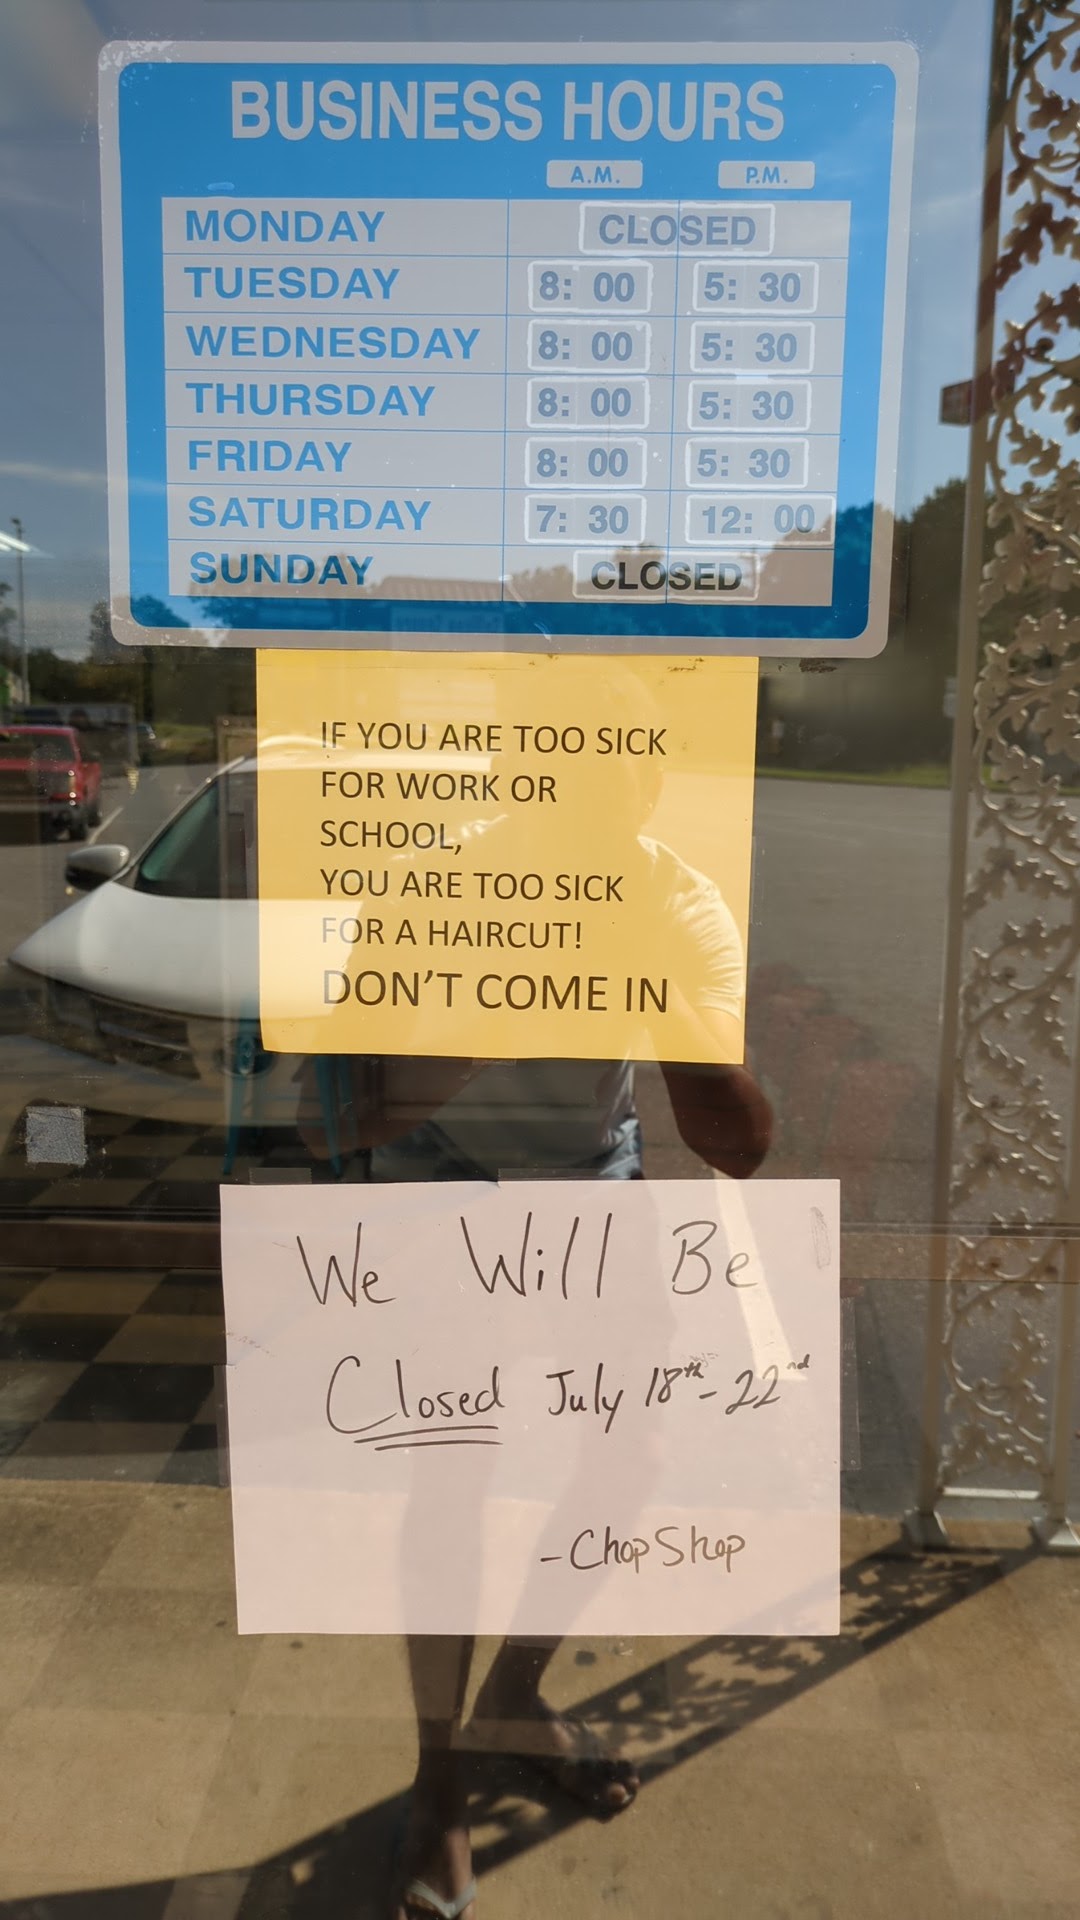 BUSINESS HOURS
A.M. P.M.
MONDAY CLOSED
TUESDAY 8: 00 5: 30
WEDNESDAY 8: 00 5: 30
THURSDAY 8: 00 5: 30
FRIDAY 8: 00 5: 30
SATURDAY 7: 30 12: 00
SUNDAY CLOSED
IF YOU ARE TOO SICK
FOR WORK OR
SCHOOL,
YOU ARE TOO SICK
FOR A HAIRCUT!
DON'T COME IN
We Will Be
Closed July 18th - 22nd
- Chop Shop